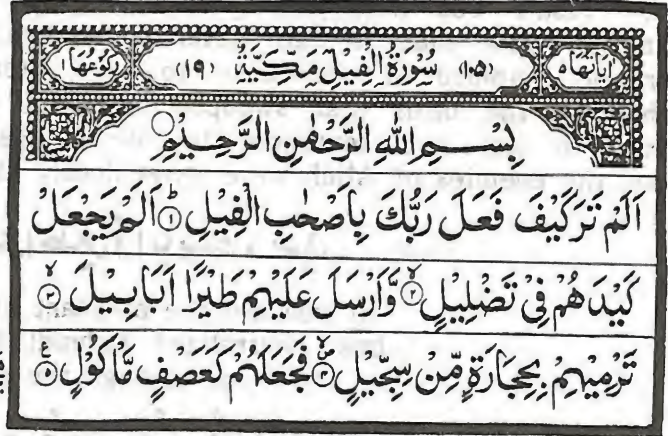 اٰيَاتُهَا ۵ (۱۰۵) سُوْرَةُ الْفِيْلِ مَكِّيَّةٌ (۱۹) رُكُوْعُهَا ۱
بِسْمِ اللهِ الرَّحْمٰنِ الرَّحِيْمِ ۝
اَلَمْ تَرَ كَيْفَ فَعَلَ رَبُّكَ بِاَصْحٰبِ الْفِيْلِ ۝۱ؕ اَلَمْ يَجْعَلْ
كَيْدَهُمْ فِيْ تَضْلِيْلٍ ۝۲ۙ وَّاَرْسَلَ عَلَيْهِمْ طَيْرًا اَبَابِيْلَ ۝۳ۙ
تَرْمِيْهِمْ بِحِجَارَةٍ مِّنْ سِجِّيْلٍ ۝۴ۙ فَجَعَلَهُمْ كَعَصْفٍ مَّاْكُوْلٍ ۝۵ۧ